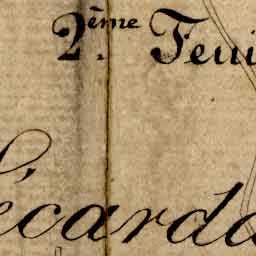 2.ème Feui
écarda